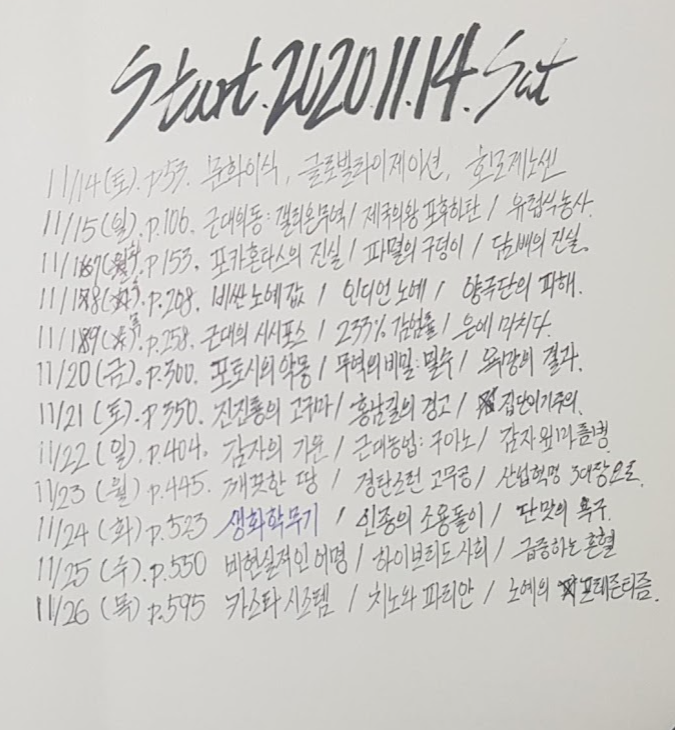 Start. 2020.11.14. Sat
11/14(토). p.53. 문화이식, 글로벌라이제이션, 호모제노센
11/15(일). p.106. 근대위동: 갤리온무역 / 제국의왕 포우하탄 / 유럽식농사.
11/17(화). p.153. 포카혼타스의 진실 / 파멸의 구덩이 / 담배의 진실.
11/18(수). p.208. 비싼 노예값 / 인디언 노예 / 양극단의 피해.
11/19(목). p.258. 근대의 시시포스 / 233% 감염률 / 은에 미치다.
11/20(금). p.300. 포토시의 악몽 / 무역의 비밀: 밀수 / 결과.
11/21(토). p.350. 진진룡의 고구마 / 홍남길의 경고 / 집단이기주의.
11/22(일). p.404. 감자의 기운 / 근대농업: 구아노 / 감자잎마름병
11/23(월) p.445. 깨끗한 땅 / 검탄소런 고무공 / 산업혁명 3대장 으로.
11/24(화) p.523 생화학무기 / 인종의 소용돌이 / 단맛의 욕구.
11/25(수) p.550 비현실적인 여명 / 하이브리드 사회 / 급증하는 혼혈
11/26(목) p.595 카스타 시스템 / 치노와 파리안 / 노예의